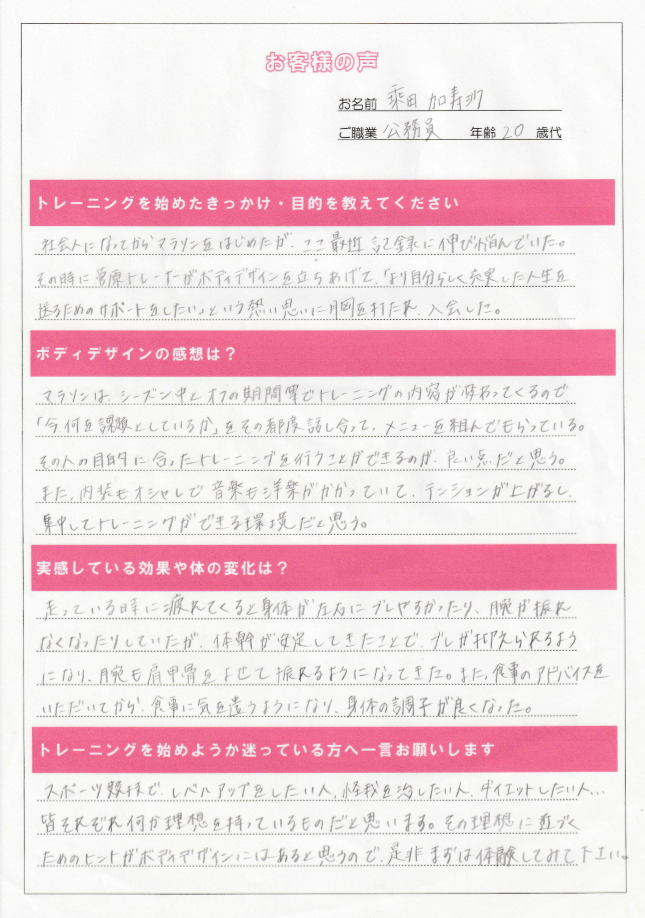 お客様の声
お名前 乘田 加寿沙
ご職業 公務員 年齢 20 歳代
トレーニングを始めたきっかけ・目的を教えてください
社会人になってからマラソンをはじめたが、ここ最近 記録に伸び悩んでいた。
その時に 菅原トレーナーがボディデザインを立ちあげて、「より自分らしく充実した人生を
送るためのサポートをしたい」という熱い思いに胸を打たれ、入会した。
ボディデザインの感想は?
マラソンは、シーズン中とオフの期間等でトレーニングの内容が変わってくるので
「今、何を課題としているか」をその都度話し合って、メニューを組んでもらっている。
その人の目的に合ったトレーニングを行うことができるのが、良い点だと思う。
また、内装もオシャレで 音楽も洋楽がかかっていて、テンションが上がるし、
集中してトレーニングができる環境だと思う。
実感している効果や体の変化は?
走っている時に疲れてくると身体が左右にブレやすかったり、腕が振れ
なくなったりしていたが、体幹が安定してきたことで、ブレが抑えられるよう
になり、腕も肩甲骨をよせて振れるようになってきた。また、食事のアドバイスを
いただいてから、食事に気を遣うようになり、身体の調子が良くなった。
トレーニングを始めようか迷っている方へ一言お願いします
スポーツ競技で、レベルアップをしたい人、怪我を治したい人、ダイエットしたい人…
皆それぞれ何か理想を持っているものだと思います。その理想に近づく
ためのヒントがボディデザインにはあると思うので、是非まずは体験してみて下さい。